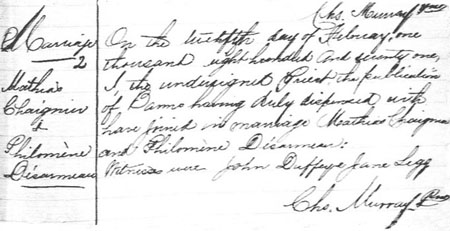 Chs. Murray Pme
Marriage
2
Mathias
Chaignier
&
Philomène
Disarmeau
On the twelfth day of February, one
thousand eight hundred and seventy one,
I, the undersigned Priest the publication
of Banns having duly dispensed with
have joined in marriage Mathias Chaignier
and Philomène Disarmeau:
Witnesses were John Duffeye Jane Legg
Chs. Murray Pme